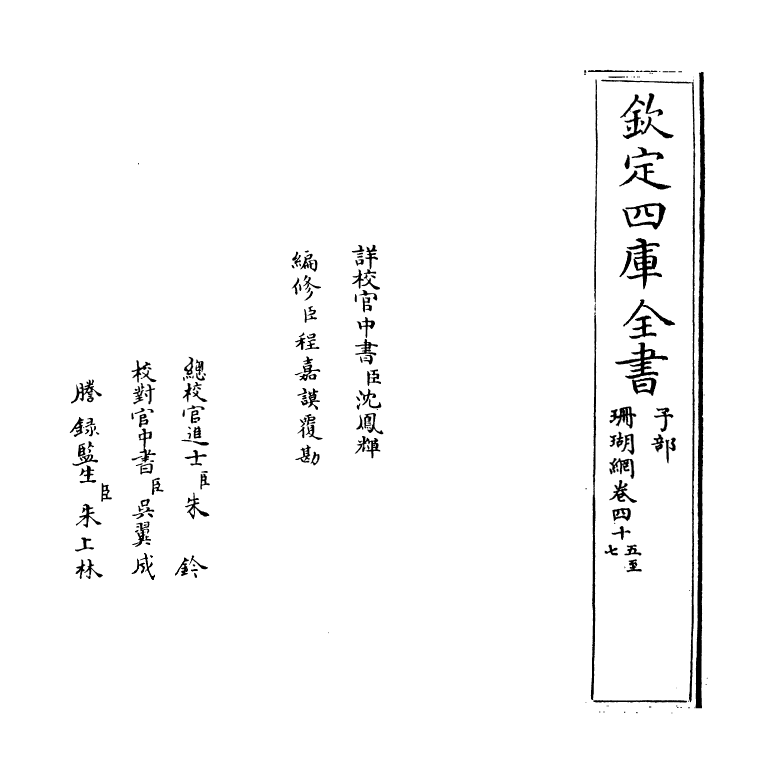 欽定四庫全書
子部
珊瑚網卷四十五至七
詳校官中書臣沈鳳輝
編修臣程嘉謨覆勘
總校官進士臣朱鈐
校對官中書臣吳翼成
謄錄監生臣朱上林